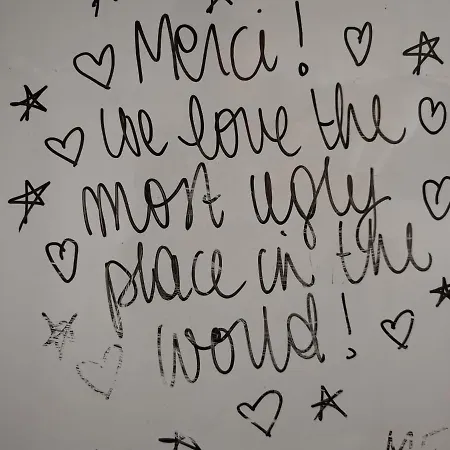 Merci!
we love the
most ugly
place in the
world!